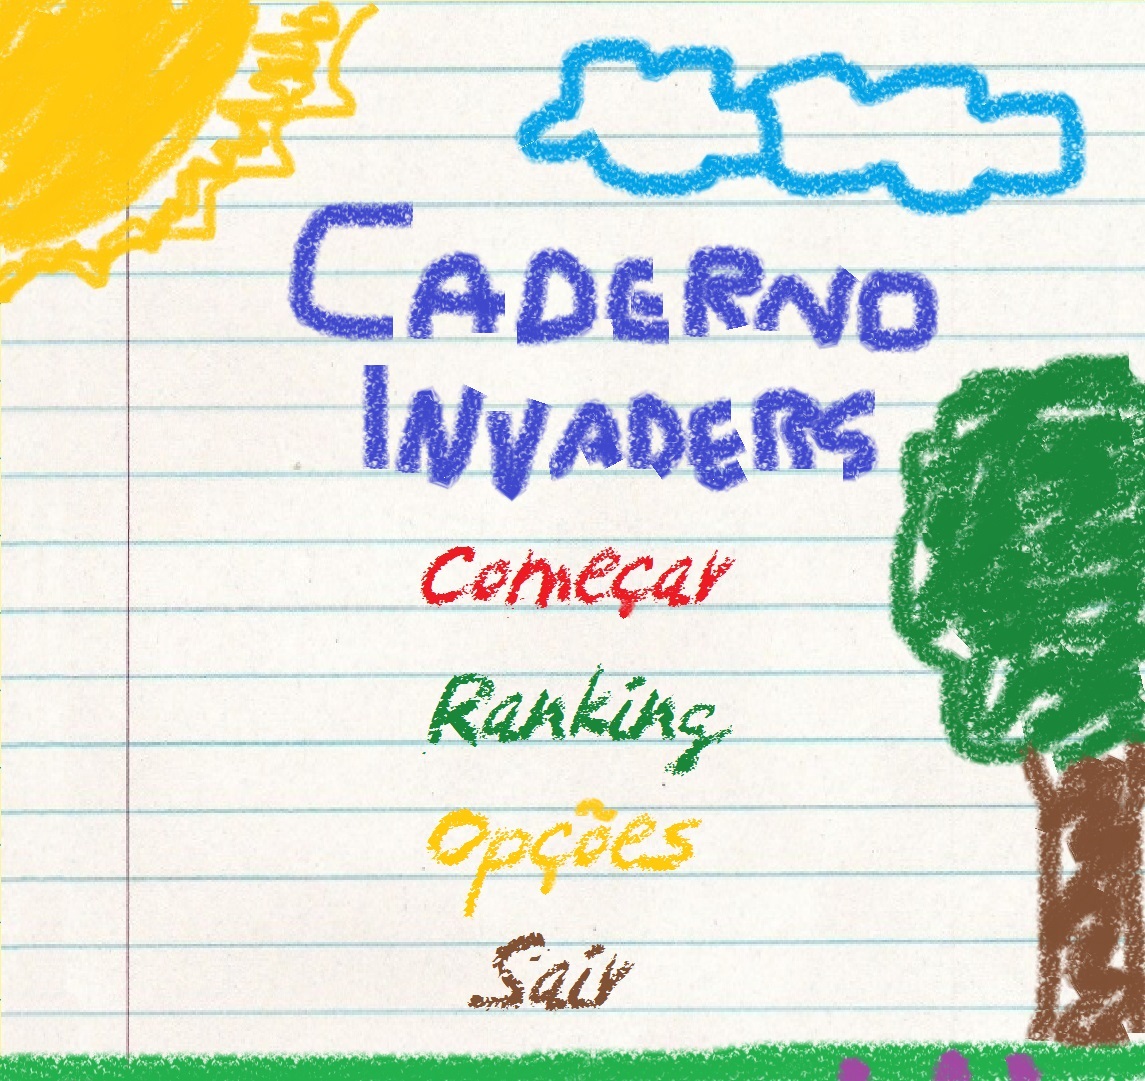 CADERNO
INVADERS
Começar
Ranking
Opções
Sair